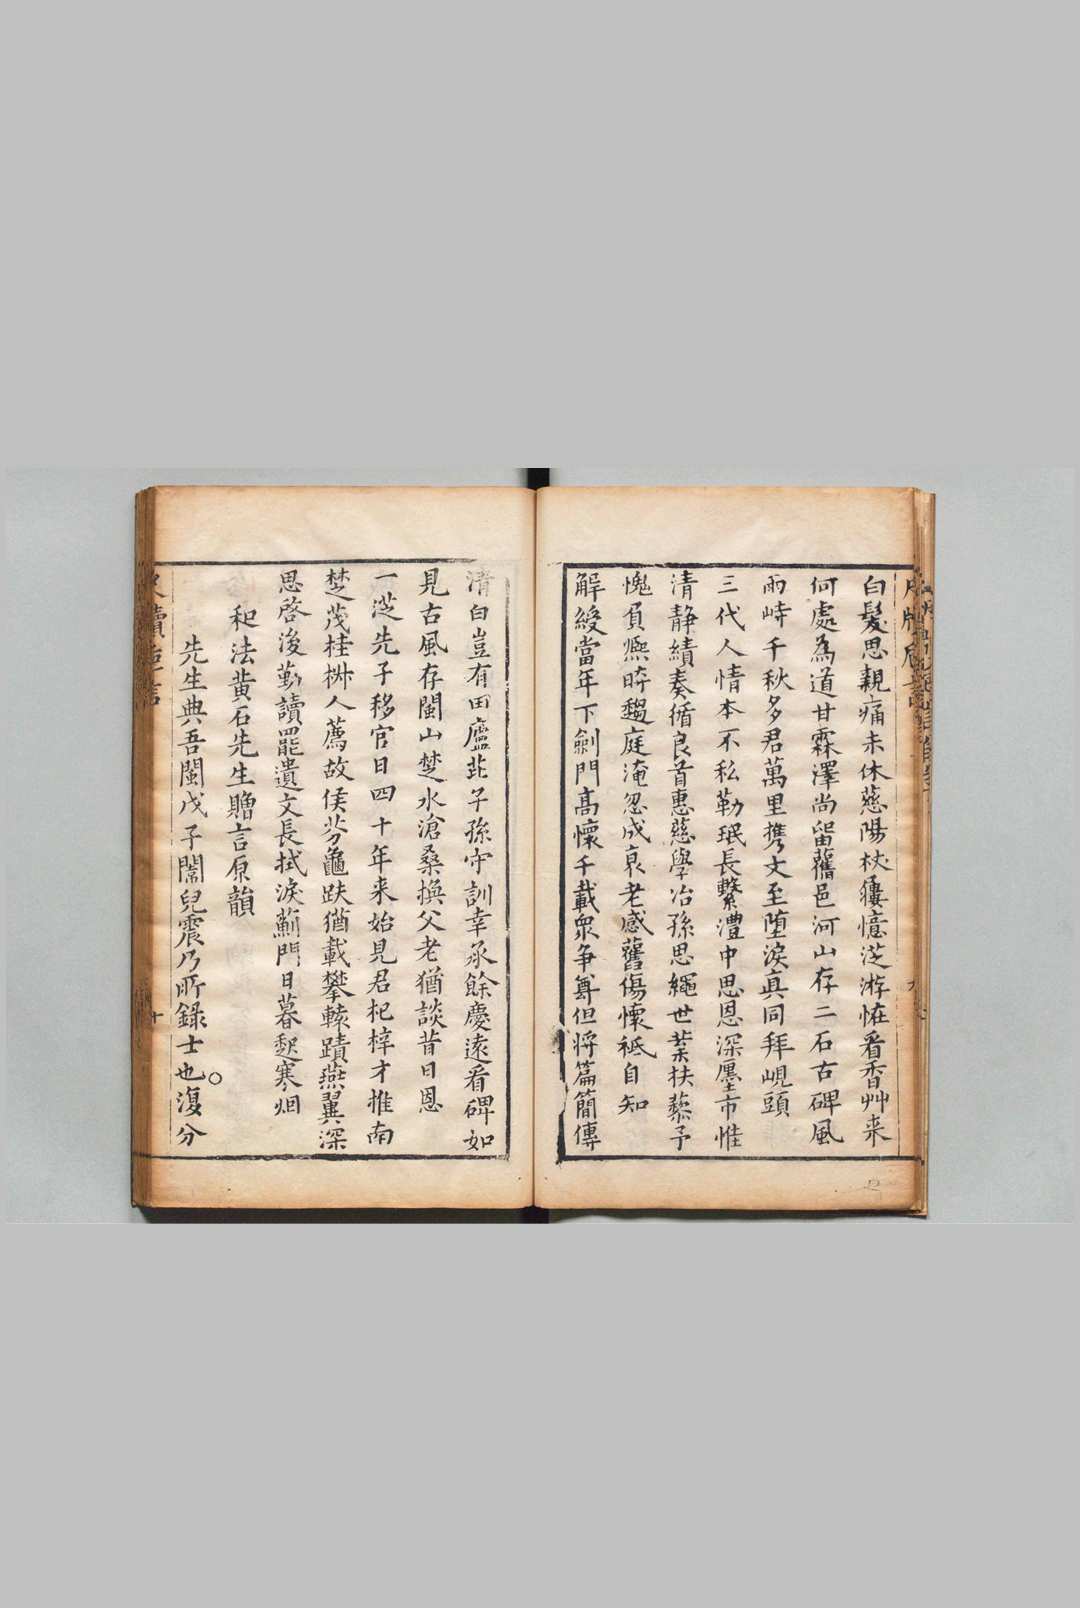 白髮思親痛未休慈陽杖屨憶茫游恠看香艸来
何處為道甘霖澤尚留舊邑河山存二石古碑風
雨峙千秋多君萬里携文至堕淚真同拜峴頭
三代人情本不私勒珉長繫澧中思恩深廛市惟
清静績奏循良首惠慈學冶孫思繩世業扶藜予
愧負燕時趨庭淹忽成衰老感舊傷懷祗自知
解綬當年下劍門高懷千載衆争尊但將篇簡傳
清白豈有田廬芘子孫守訓幸承餘慶遠看碑如
見古風存閩山楚水滄桑換父老猶談昔日恩
一從先子移官日四十年来始見君杞梓才推南
楚茂桂桝人薦故侯芬龜趺猶載攀轅蹟燕翼深
思啓後勤讀罷遺文長拭淚薊門日暮起寒烟
和法黄石先生贈言原韻
先生典吾閩戊子闈兒震乃所録士也復分